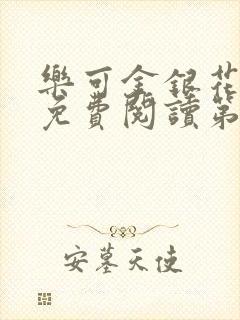 樂可金銀花
免費閱讀第
安墓天使